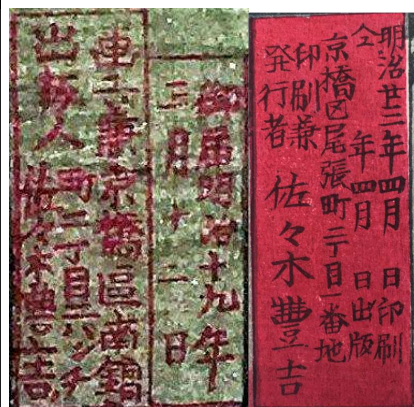 明治廿三年四月 日印刷
仝 年四月 日出版
京橋区尾張町二丁目一番地
印刷兼
発行者 佐々木豐吉
御届明治十九年
三月十二日
画工兼京橋區南鍋
町二丁目三バンチ
出版人 佐々木豊吉